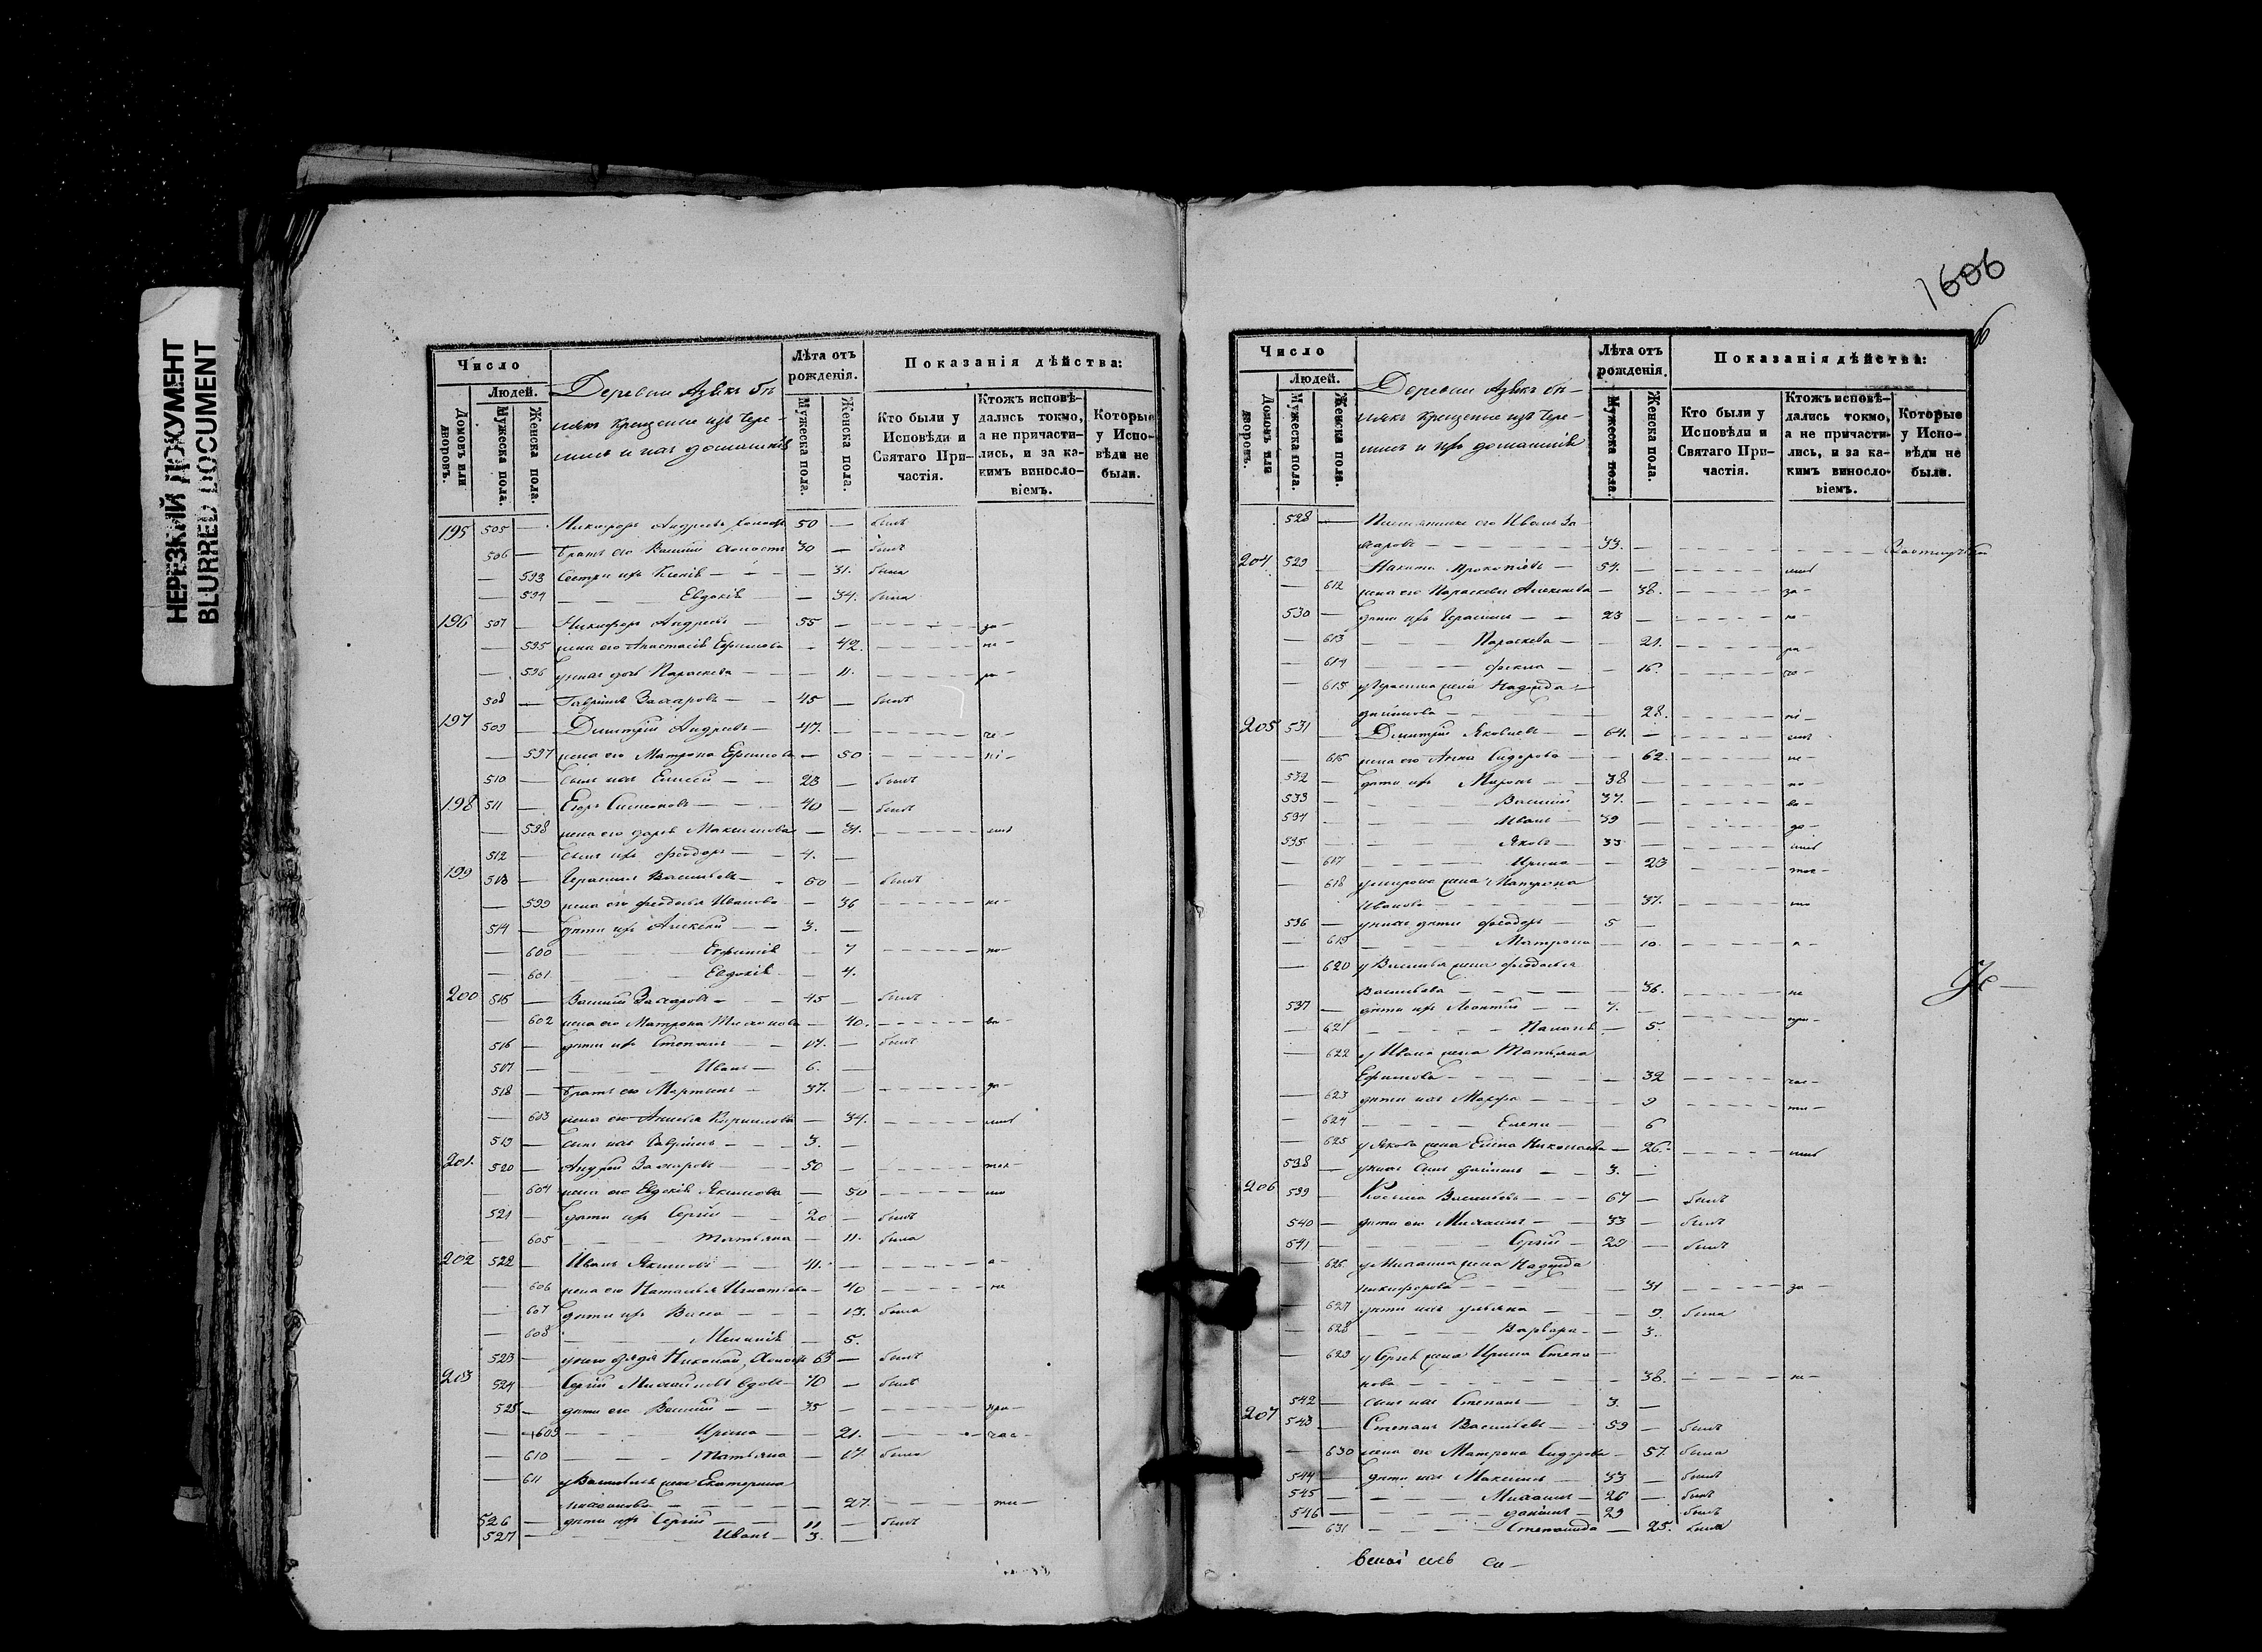 НЕРЕЗКИЙ ДОКУМЕНТ
BLURRED DOCUMENT
Число
Людей.
Домовъ или дворовъ.
Мужеска пола.
Женска пола.
Деревни Азъякъ
крещеные изъ Чере-
мисъ и
Лѣта отъ рожденія.
Мужеска пола.
Женска пола.
Показанія дѣйства:
Кто были у Исповѣди и Святаго При-частія.
Ктожъ исповѣ-дались токмо, а не причасти-лись, и за ка-кимъ винослo-віемъ.
Которые у Испо-вѣди не были.
195 505 — Никифоръ Андреевъ холостъ 50 — былъ
506 — братъ его Василий холостъ 30 — былъ
— 593 Сестры ихъ — — 31. была
— 594 — Евдокія — 34. была
196 507 — Никифоръ Андреевъ — 55 — за-
— 595 жена его Анастасія Ефимова — 42. не
— 596 у нихъ дочь Параскева — — 11. ра-
508 — Гаврилъ Захаровъ — 45 — былъ
197 509 — Димитрій Андреевъ — 47. — че-
— 597 жена его Матрона Ефимова — 50 ні-
510 — сынъ ихъ Елисей — 23 — былъ
198 511 — Егоръ Симеоновъ — 40 — былъ
— 598 жена его Дарія Максимова — 31.
512 — сынъ ихъ Феодоръ — 4. —
199 513 — Герасимъ Васильевъ — 50 — былъ
— 599 жена его Феодосья Иванова — 36 не-
514 — дѣти ихъ Алексѣй — 3. —
— 600 Евфимія — 7 по-
— 601 Евдокія — 4.
200 515 — Василий Захаровъ — 45 — былъ
— 602 жена его Матрона Тихонова — 40. во-
516 — дѣти ихъ Степанъ — 17. — былъ
517 — Иванъ — 6. —
518 — братъ его Мартынъ — 37. — до-
— 603 жена его Анисья Кирилова — 34.
519 — сынъ ихъ Гаврилъ — 3. —
201. 520 — Андрей Захаровъ — 50 — тол-
— 604 жена его Евдокія Якимова — 50 ко
521 — дѣти ихъ Сергій — 20 — былъ
— 605 Татьяна — 11. была
202 522 — Иванъ Якимовъ — 41. — а-
— 606 жена его Наталья Игнатьева — 40 не
— 607 дѣти ихъ Васса — — 13. была
— 608 Меланія — 5.
523 — у него дядя Николай, холостъ 63 — былъ
203 524 — Сергій Михайловъ вдовъ — 70 — былъ
525 — дѣти его Василий — 35 — при-
— 609 Ирина — 21. час-
— 610 Татьяна — 17. была
— 611 у Василья жена Екатерина
— 27. ти-
526 — дѣти ихъ Сергій — 11 — былъ
527 — Иванъ — 3. —
1606
Число
Людей.
Домовъ или дворовъ.
Мужеска пола.
Женска пола.
Деревни Азъякъ
крещеные изъ Чере-
мисъ и ихъ домашніе
Лѣта отъ рожденія.
Мужеска пола.
Женска пола.
Показанія дѣйства:
Кто были у Исповѣди и Святаго При-частія.
Ктожъ исповѣ-дались токмо, а не причасти-лись, и за ка-кимъ винослo-віемъ.
Которые у Испо-вѣди не были.
528 — Племянникъ его Иванъ За-
харовъ — 33. —
204 529 — Никита Прокопіевъ — 54. —
— 612 жена его Параскева Алексѣева — 38. за-
530 — дѣти ихъ Герасимъ — 23 —
— 613 Параскева — 21. ра-
— 614 Фекла — 16. че-
— 615 у Герасима жена Надежда
— 28. ні-
205 531 — Димитрій Яковлевъ — 64. —
— 616 жена его Анна Сидорова — 62. не-
532 — дѣти ихъ Миронъ — 38 — по-
533 — Василий 37. — во-
534 — Иванъ — 39 — до-
535 — Яковъ — 33 —
— 617 Ирина — 23 тол-
— 618 у Мирона жена Матрона
Иванова — 37. ко
536 — у нихъ дѣти Феодоръ — 5 —
— 619 Матрона — 10. а-
— 620 у Василья жена Феодосья
Васильева — 36. не
537 — дѣти ихъ Леонтій — 7. — при-
— 621 — 5.
— 622 у Ивана жена Татьяна
Ефимова — 32 час-
— 623 дѣти ихъ Марфа — 9 ти-
— 624 Елена — 6
— 625 у Якова жена Елена Николаева — 26.
538 — у нихъ сынъ Даніилъ — 3. —
206 539 — Косма Васильевъ — 67 — былъ
540 — дѣти его Михаилъ — 33 — былъ
541 — Сергій — 29 — былъ
— 626 у Михаила жена Надежда
Никифорова — 31 за-
— 627 дѣти ихъ Ульяна — 9. была
— 628 Варвара — 3.
— 629 у Сергія жена Ирина Степа-
нова — 38. не-
542 — сынъ ихъ Степанъ — 3. —
207 543 — Степанъ Васильевъ — 59 — былъ
— 630 жена его Матрона Сидорова — 57. была
544 — дѣти ихъ Максимъ — 33 — былъ
545 — Михаилъ — 26 — былъ
546 — Даніилъ — 29 былъ
— 631 Степанида — 25. была